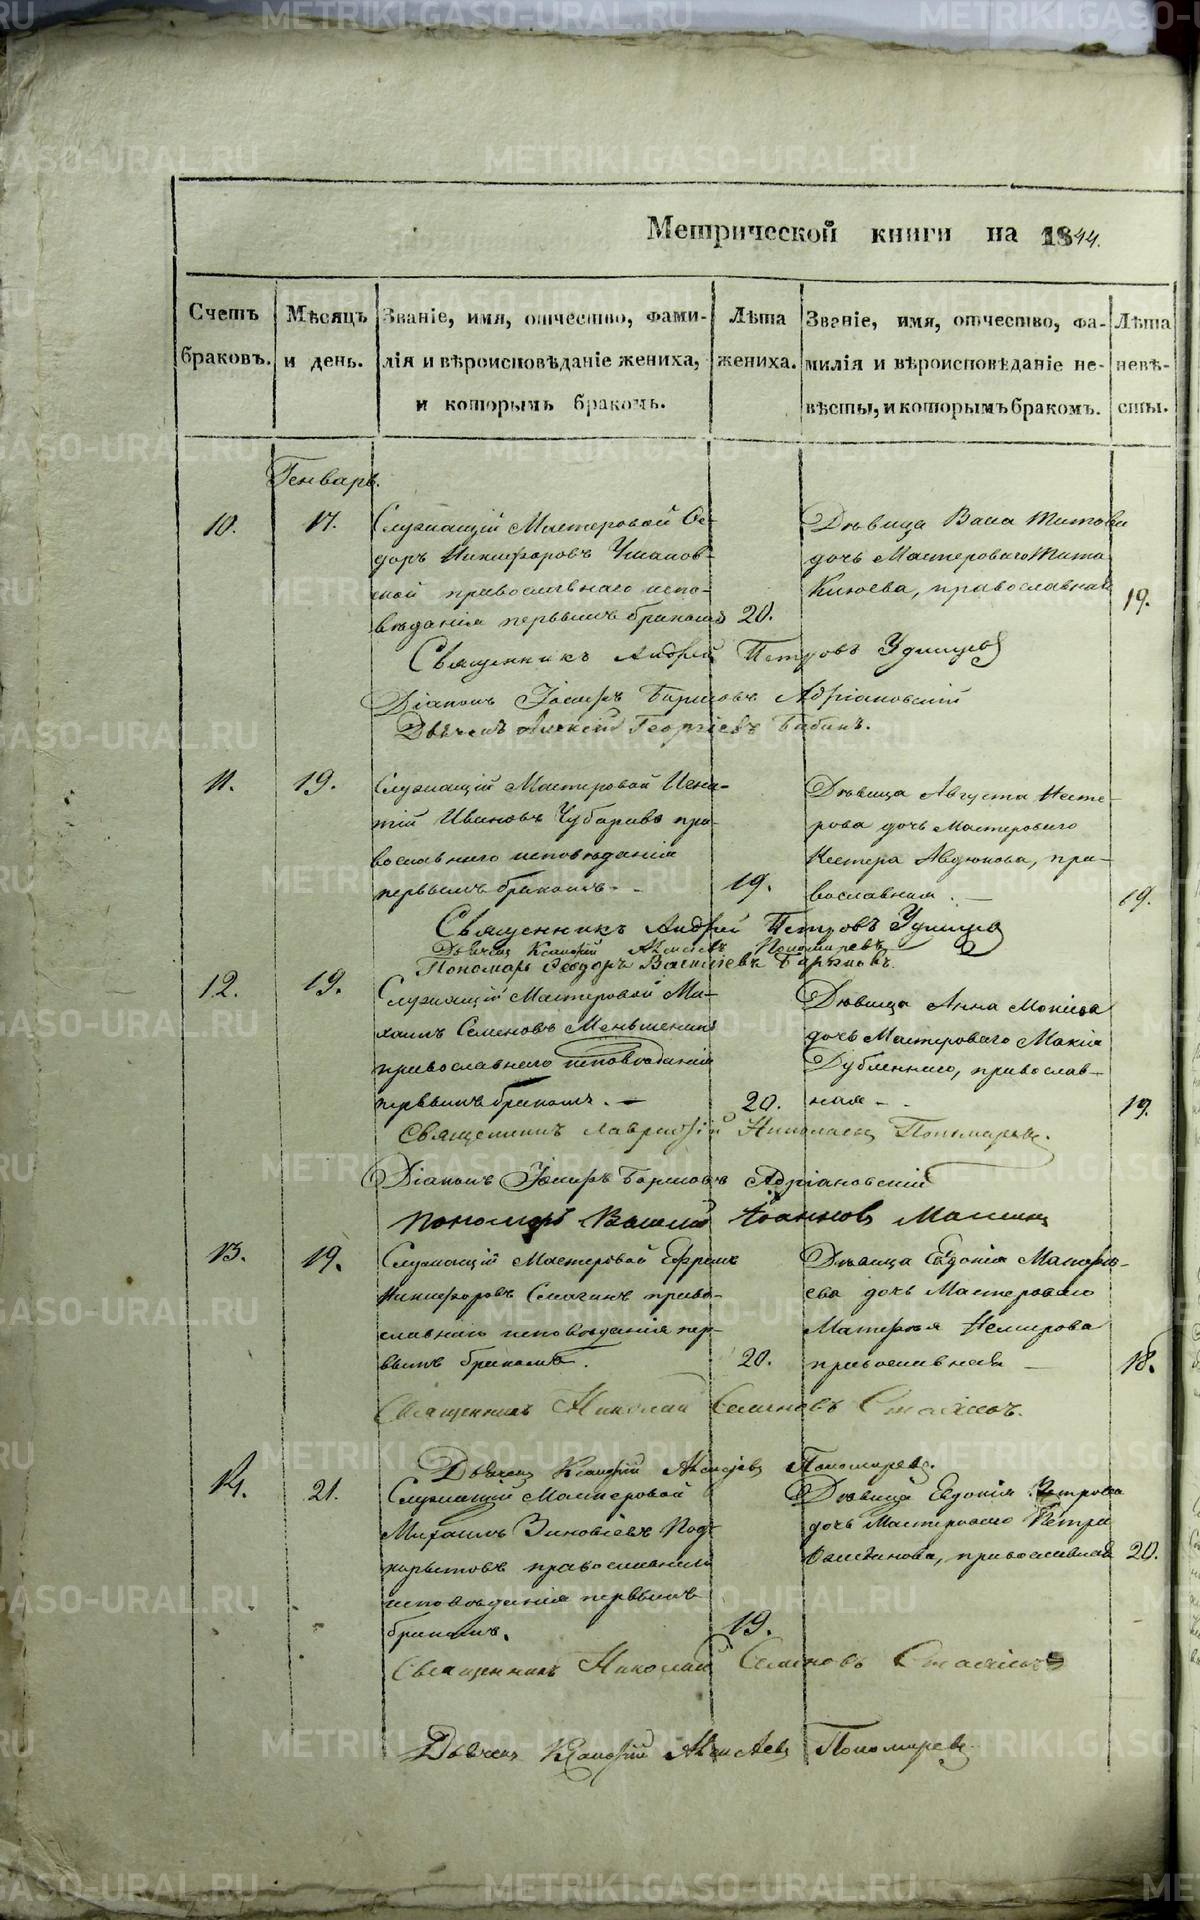 Метрической книги на 1844.
Счетъ браковъ.
Мѣсяцъ и день.
Званіе, имя, отчество, фами-
лія и вѣроисповѣданіе жениха,
и которымъ бракомъ.
Лѣта жениха.
Званіе, имя, отчество, фа-
милія и вѣроисповѣданіе не-
вѣсты, и которымъ бракомъ.
Лѣта невѣ-
сты.
Генварь.
10.
17.
Служащій Мастеровой Ѳе-
доръ Никифоровъ
православнаго испо-
вѣданія первымъ бракомъ
20.
Дѣвица Васса Титова
дочь Мастероваго Тита
Клюева, православная
19.
Священникъ Андрей Петровъ Удинцов
Діаконъ Іосифъ Борисовъ Адріановскій
Дьячекъ Алексій Георгіевъ Бабинъ.
11.
19.
Служащій Мастеровой Игна-
тій Ивановъ Чубаровъ пра-
вославнаго исповѣданія
первымъ бракомъ. -
19.
Дѣвица Августа Несте-
рова дочь Мастероваго
Нестера Авдюкова, пра-
вославная. -
19.
Священникъ Андрей Петровъ Удинцов
Дьячек Клавдий Алексіевъ Пономаревъ
Пономарь Ѳеодоръ Василіевъ
12.
19.
Служащій Мастеровой Ми-
хаилъ Семеновъ Меньшенинъ
православнаго исповѣданія
первымъ бракомъ. -
20.
Дѣвица Анна Мокіева
дочь Мастероваго Мокія
Дубленнаго, православ-
ная - .
19.
Священникъ Лаврентій Николаевъ Пономаревъ.
Діаконъ Іосифъ Борисовъ Адріановскій
Пономарь Василій Іоанновъ
13.
19.
Служащій Мастеровой Ефремъ
Никифоровъ Смагинъ право-
славнаго исповѣданія пер-
вымъ бракомъ.
20.
Дѣвица Евдокія
дочь Мастероваго
Немирова
православная -
18.
Священникъ Николай Семеновъ
Дьячекъ Клавдій Алексіевъ Пономаревъ.
14.
21.
Служащій Мастеровой
Михаилъ Зиновіевъ Под-
корытовъ православнаго
исповѣданія первымъ
бракомъ.
19.
Дѣвица Евдокія Петрова
дочь Мастероваго Петра
православная
20.
Священникъ Николай Семеновъ
Дьячекъ Клавдій Алексіевъ Пономаревъ
METRIKI.GASO-URAL.RU